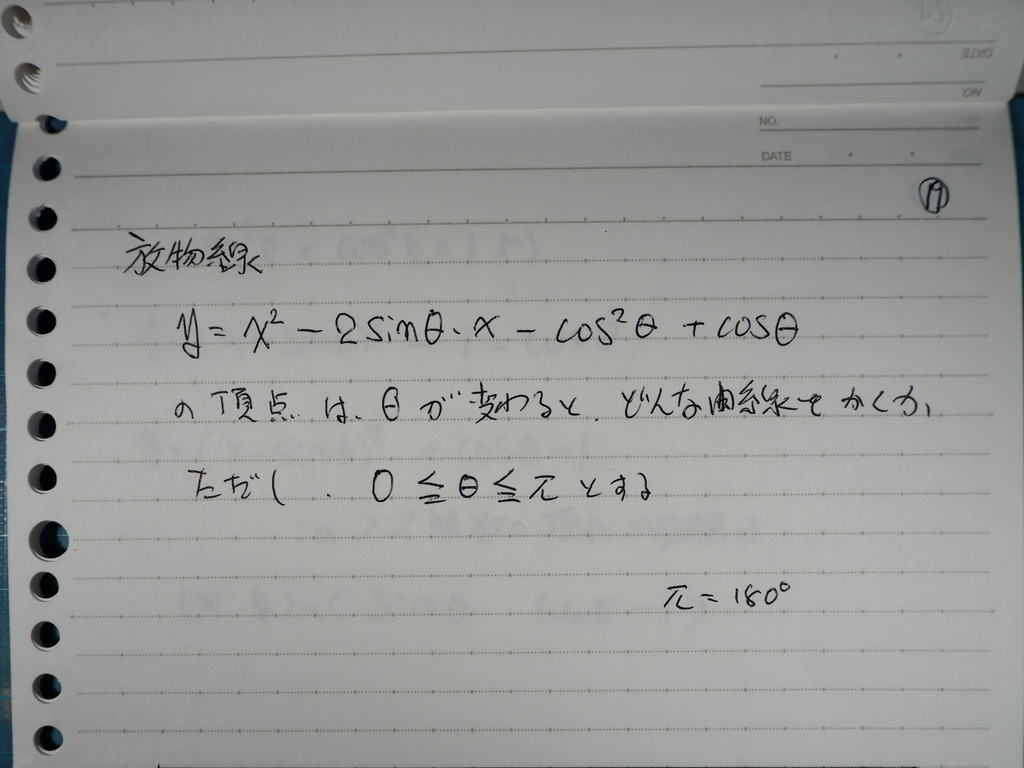 DATE
NO.
NO.
DATE
⑲
放物線
y = x² - 2sinθ・x - cos²θ + cosθ
の頂点は、θが変わると、どんな曲線をかくか、
ただし、0 ≦ θ ≦ π とする
π = 180°